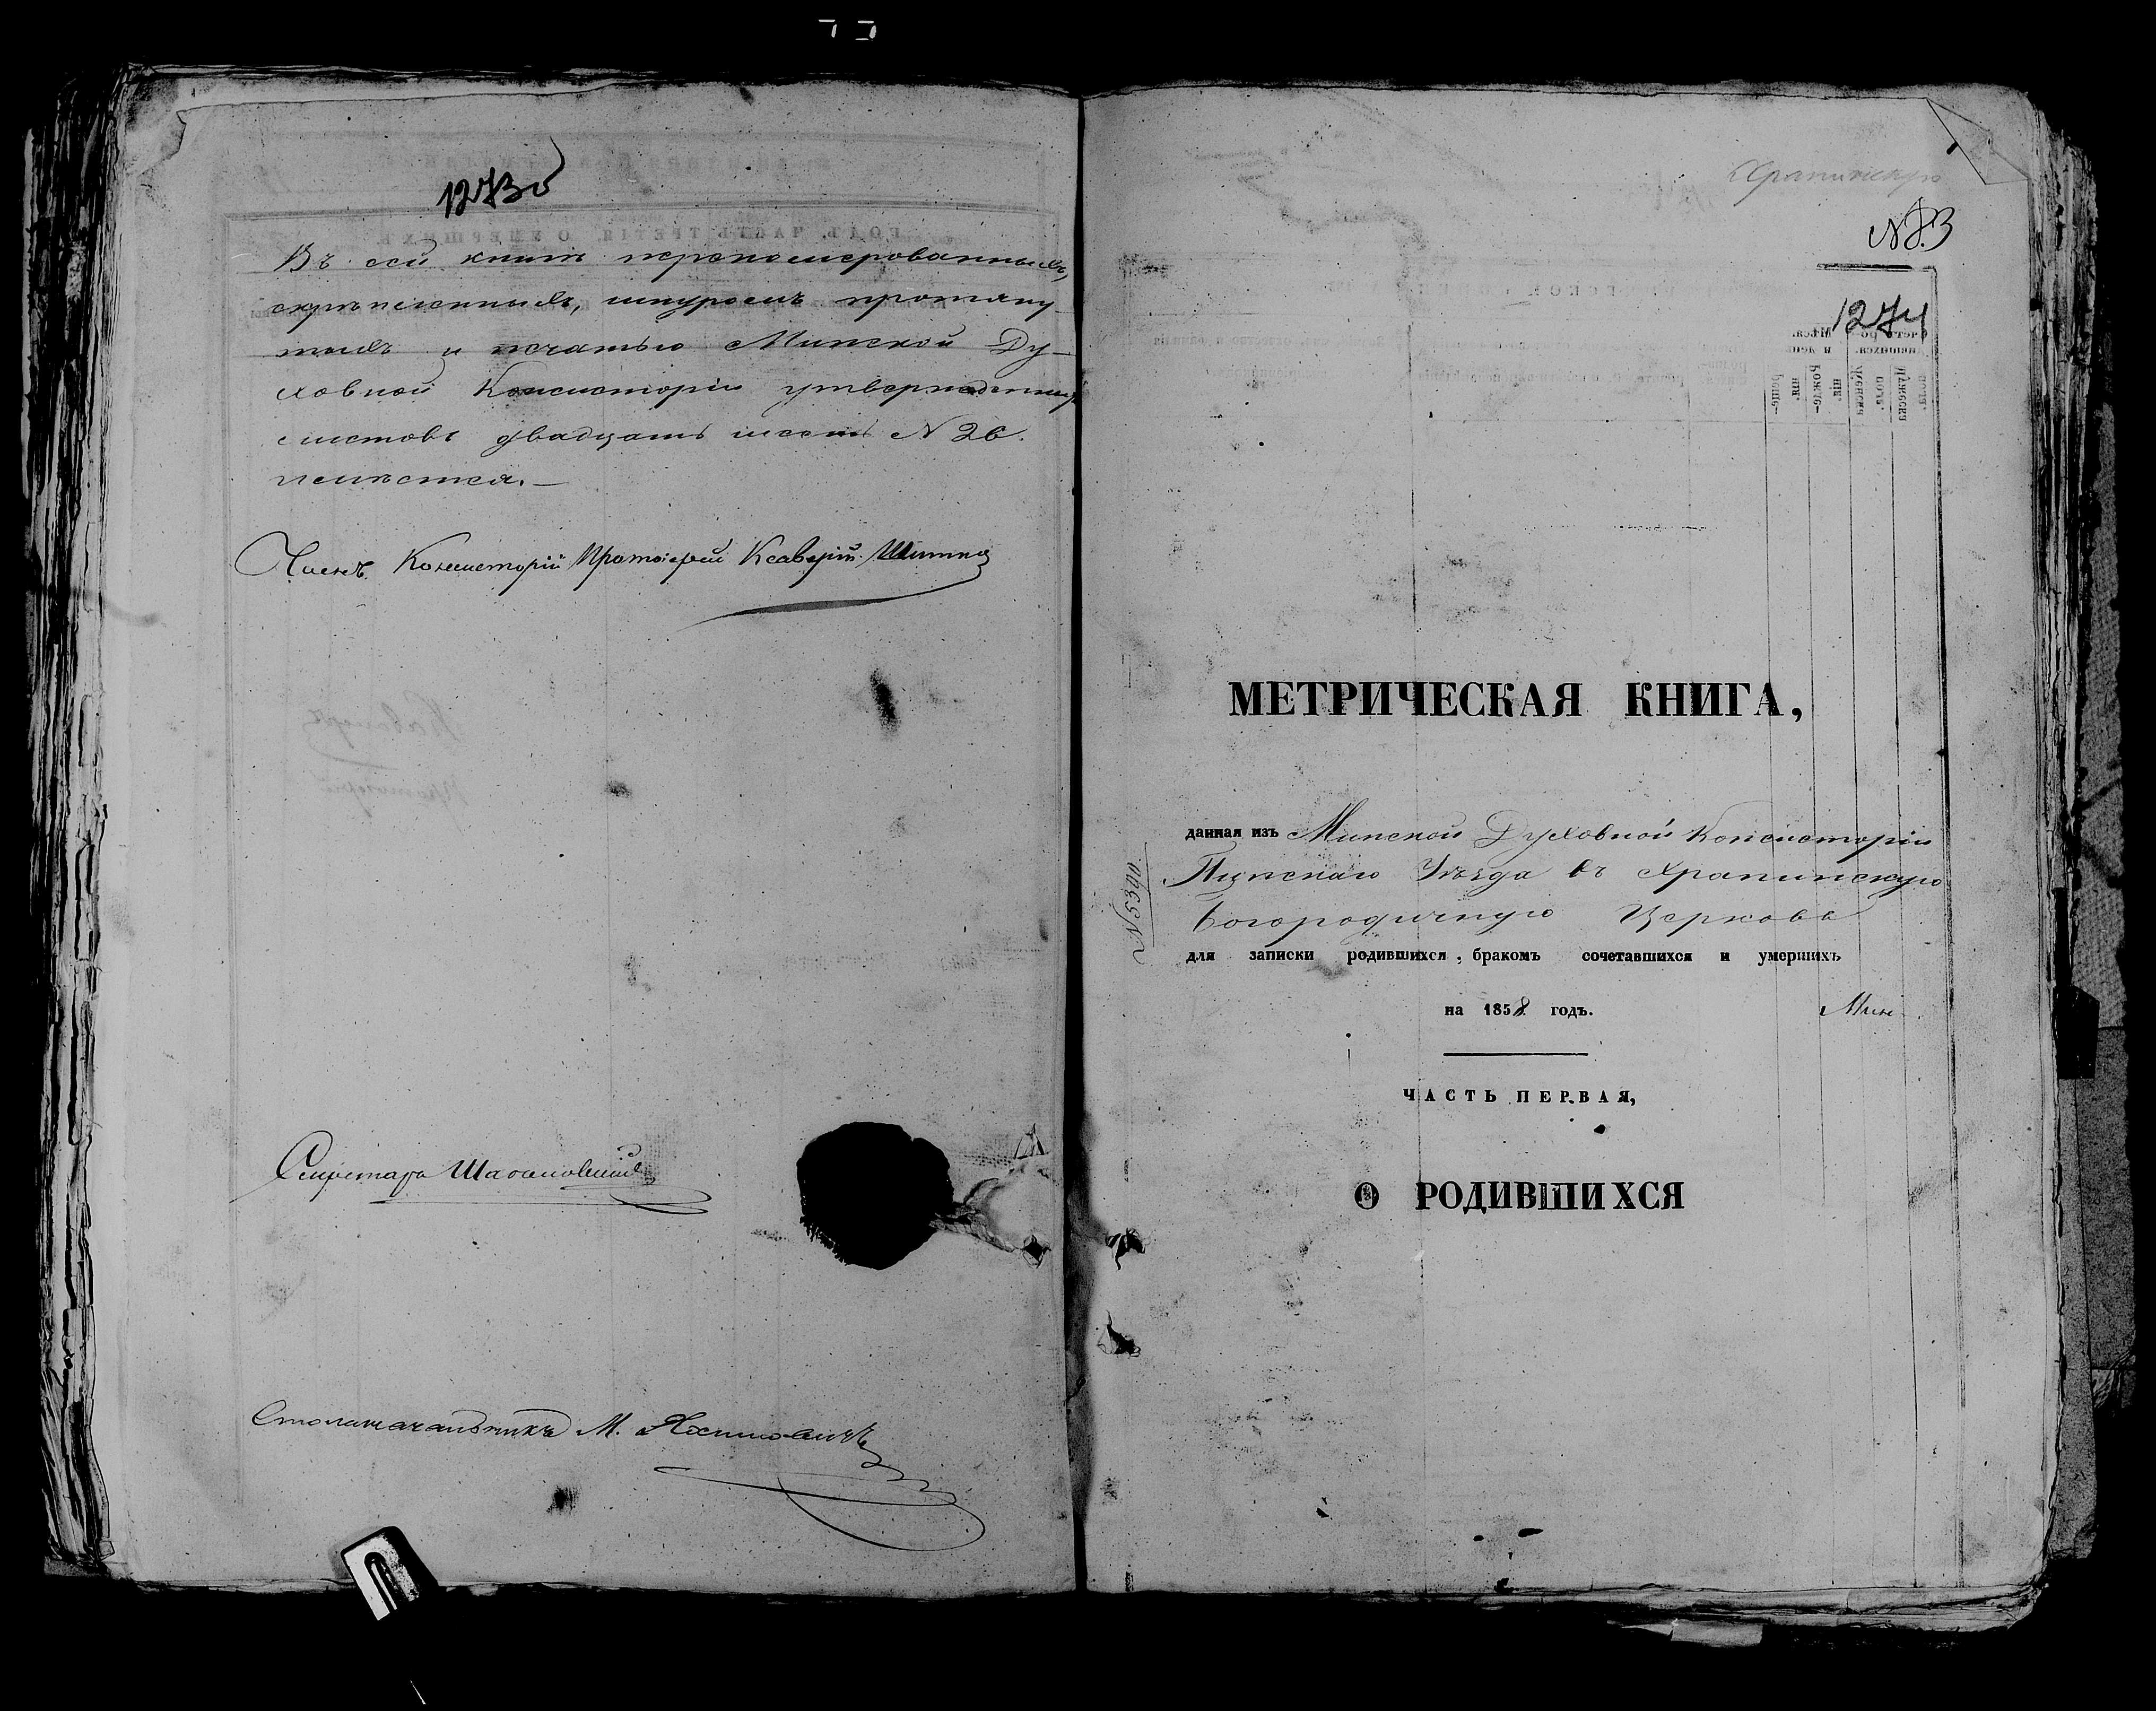 1273 об
Въ сей книгѣ перенумерованныхъ,
скрѣпленныхъ, шнуромъ протяну-
тыхъ и печатью Минской Ду-
ховной Консисторіи утвержденныхъ
листовъ двадцать шесть N 26.
имѣется.—
Членъ Консисторіи Протоіерей Ксаверій
Секретарь
Столоначальникъ М.
Храпинскую
N 83
1274
МЕТРИЧЕСКАЯ КНИГА,
данная изъ Минской Духовной Консисторіи
Пинскаго Уѣзда въ Храпинскую
Богородичную Церковь
N 5390
для записки родившихся, бракомъ сочетавшихся и умершихъ
на 1858 годъ.
Мин-
ЧАСТЬ ПЕРВАЯ,
О РОДИВШИХСЯ